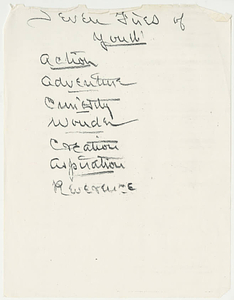 Seven Fires of
Youth
Action
Adventure
Curiosity
Wonder
Creation
Aspiration
Reverence